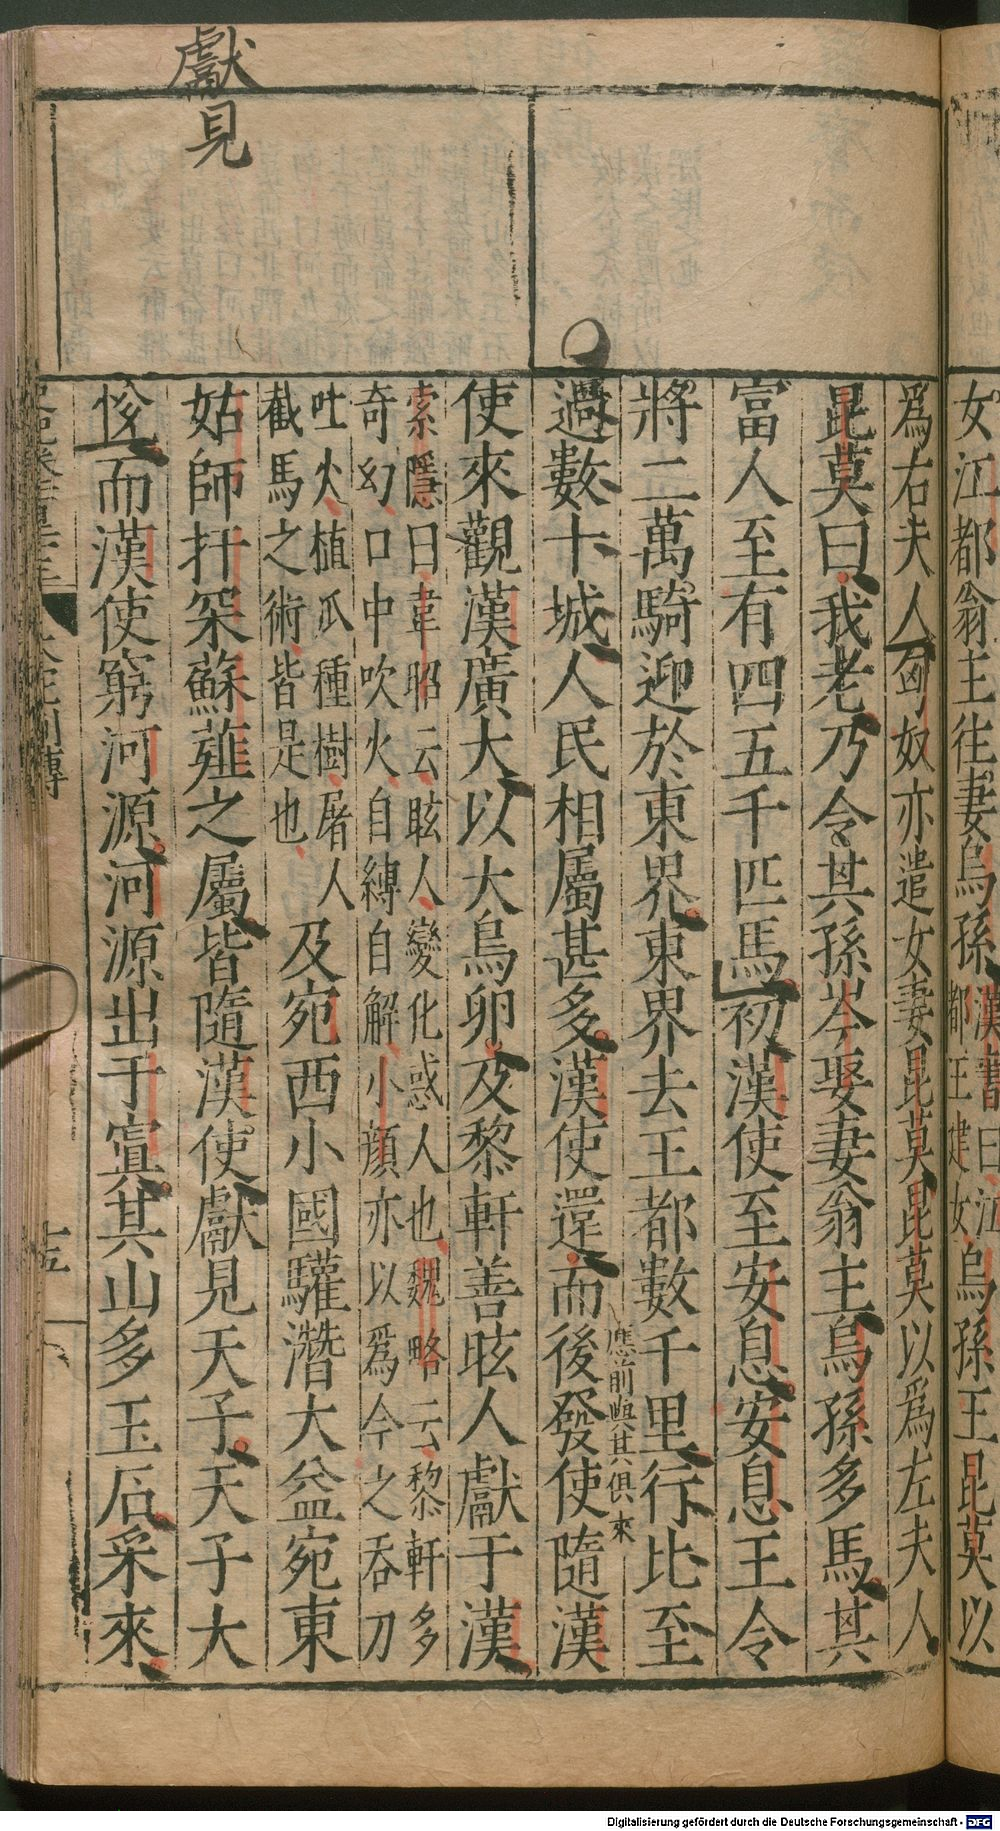 女江都翁主徃妻烏孫
漢書曰江
都王建女
烏孫王昆莫以
爲右夫人匈奴亦遣女妻昆莫昆莫以爲左夫人
昆莫曰我老乃令其孫岑娶妻翁主烏孫多馬其
富人至有四五千匹馬初漢使至安息安息王令
將二萬騎迎於東界東界去王都數千里行比至
應前與其俱來
過數十城人民相屬甚多漢使還而後發使隨漢
使來觀漢廣大以大鳥卵及黎軒善眩人獻于漢
索隱曰韋昭云眩人變化惑人也魏略云黎軒多
奇幻口中吹火自縛自解小顏亦以爲今之吞刀
吐火植瓜種樹屠人
截馬之術皆是也
及宛西小國驩潛大益宛東
獻見
姑師扞罙蘇薤之屬皆隨漢使獻見天子天子大
悅而漢使窮河源河源出于窴其山多玉石采來
大宛列傳
十五
Digitalisierung gefördert durch die Deutsche Forschungsgemeinschaft - DFG